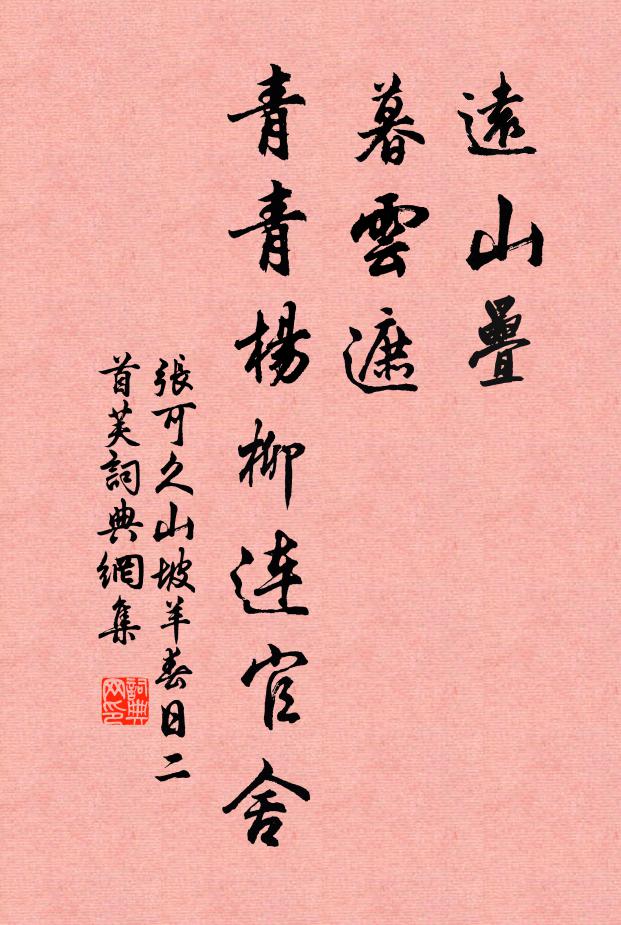 遠山疊
暮雲遮
青青楊柳連官舍
張可久山坡羊春日二
首芙詞典網集
詞典
网印